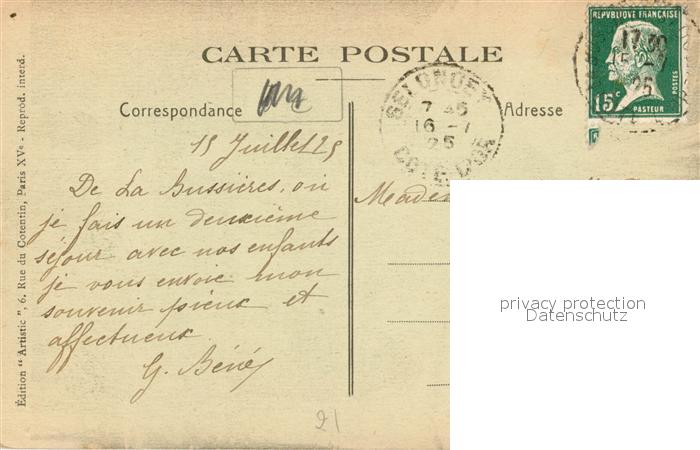 REPVBLIQUE FRANÇAISE
15c
POSTES
PASTEUR
17 30
15 -7
25
CARTE POSTALE
Correspondance
Adresse
SELONGEY
7 45
16 - 7
25
COTE D'OR
15 Juillet 25
De La Bussières, où
je fais un deuxième
séjour avec nos enfants
je vous envoie mon
souvenir pieux et
affectueux.
G.
21
Édition “ Artistic ”, 6, Rue du Cotentin, Paris XVe - Reprod. interd.
privacy protection
Datenschutz